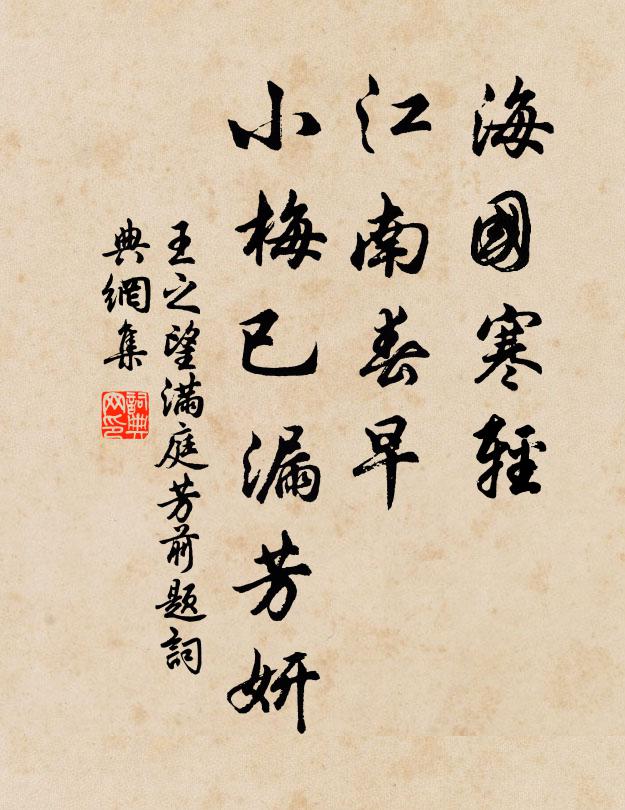 海國寒輕
江南春早
小梅已漏芳妍
王之望满庭芳前题詞
典網集
詞典网印